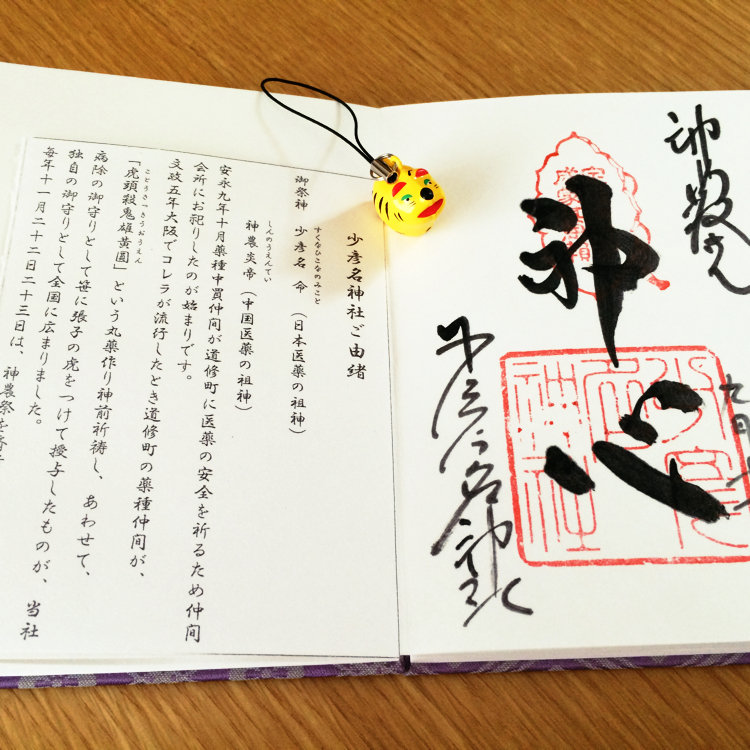 少彦名神社ご由緒
御祭神 少彦名命(日本医薬の祖神)
すくなひこなのみこと
神農炎帝(中国医薬の祖神)
しんのうえんてい
安永九年十月薬種中買仲間が道修町に医薬の安全を祈るため仲間
会所にお祀りしたのが始まりです。
文政五年大阪でコレラが流行したとき道修町の薬種仲間が、
「虎頭殺鬼雄黄圓」という丸薬作り神前祈祷し、あわせて、
ことうさっきうおうえん
病除の御守りとして笹に張子の虎をつけて授与したものが、当社
独自の御守りとして全国に広まりました。
毎年十一月二十二日二十三日は、神農祭
神農さん
神心
少彦名神社